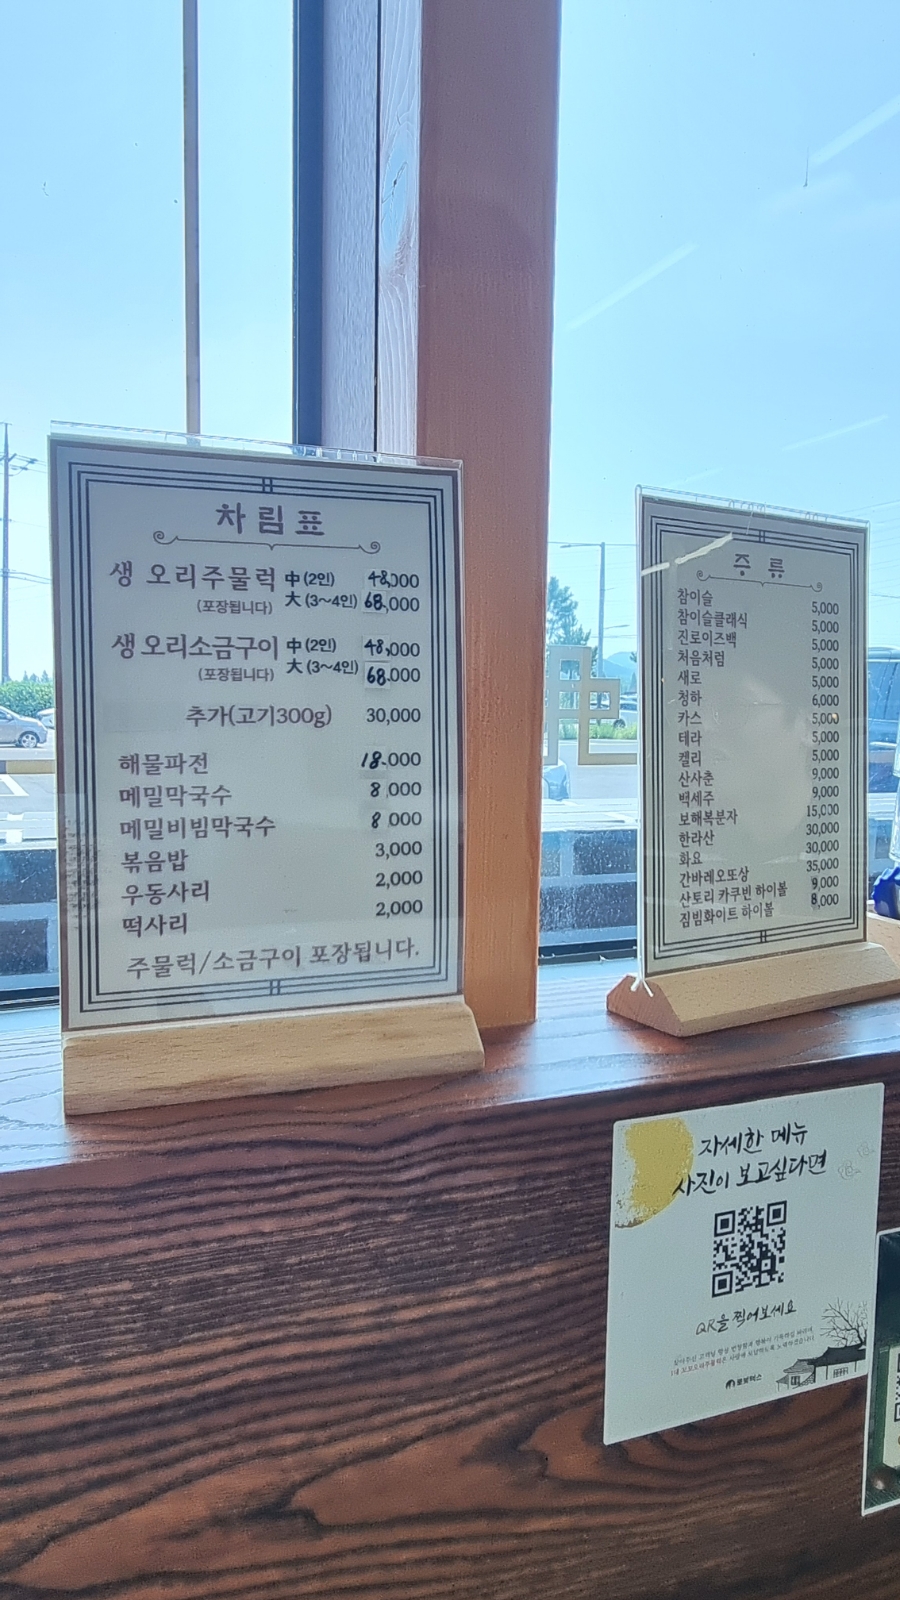 차림표
생 오리주물럭 中(2인) 48,000
(포장됩니다) 大(3~4인) 68,000
생 오리소금구이 中(2인) 48,000
(포장됩니다) 大(3~4인) 68,000
추가(고기300g) 30,000
해물파전 18,000
메밀막국수 8,000
메밀비빔막국수 8,000
볶음밥 3,000
우동사리 2,000
떡사리 2,000
주물럭/소금구이 포장됩니다.
주류
참이슬 5,000
참이슬클래식 5,000
진로이즈백 5,000
처음처럼 5,000
새로 5,000
청하 6,000
카스 5,000
테라 5,000
켈리 5,000
산사춘 9,000
백세주 9,000
보해복분자 15,000
한라산 30,000
화요 30,000
간바레오또상 35,000
산토리 카쿠빈 하이볼 9,000
짐빔화이트 하이볼 8,000
자세한 메뉴
사진이 보고싶다면
QR을 찍어보세요